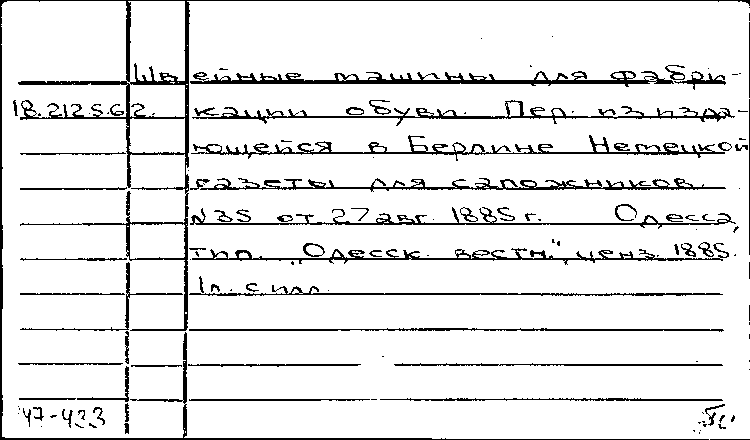 Швейные машины для фабри-
18.212.5.62. кации обуви. Пер. из изда-
ющейся в Берлине Немецкой
газеты для сапожников.
№35 от 27 авг. 1885 г. Одесса,
тип. "Одесск. вестн.", ценз. 1885.
1 л. с илл.
47-423